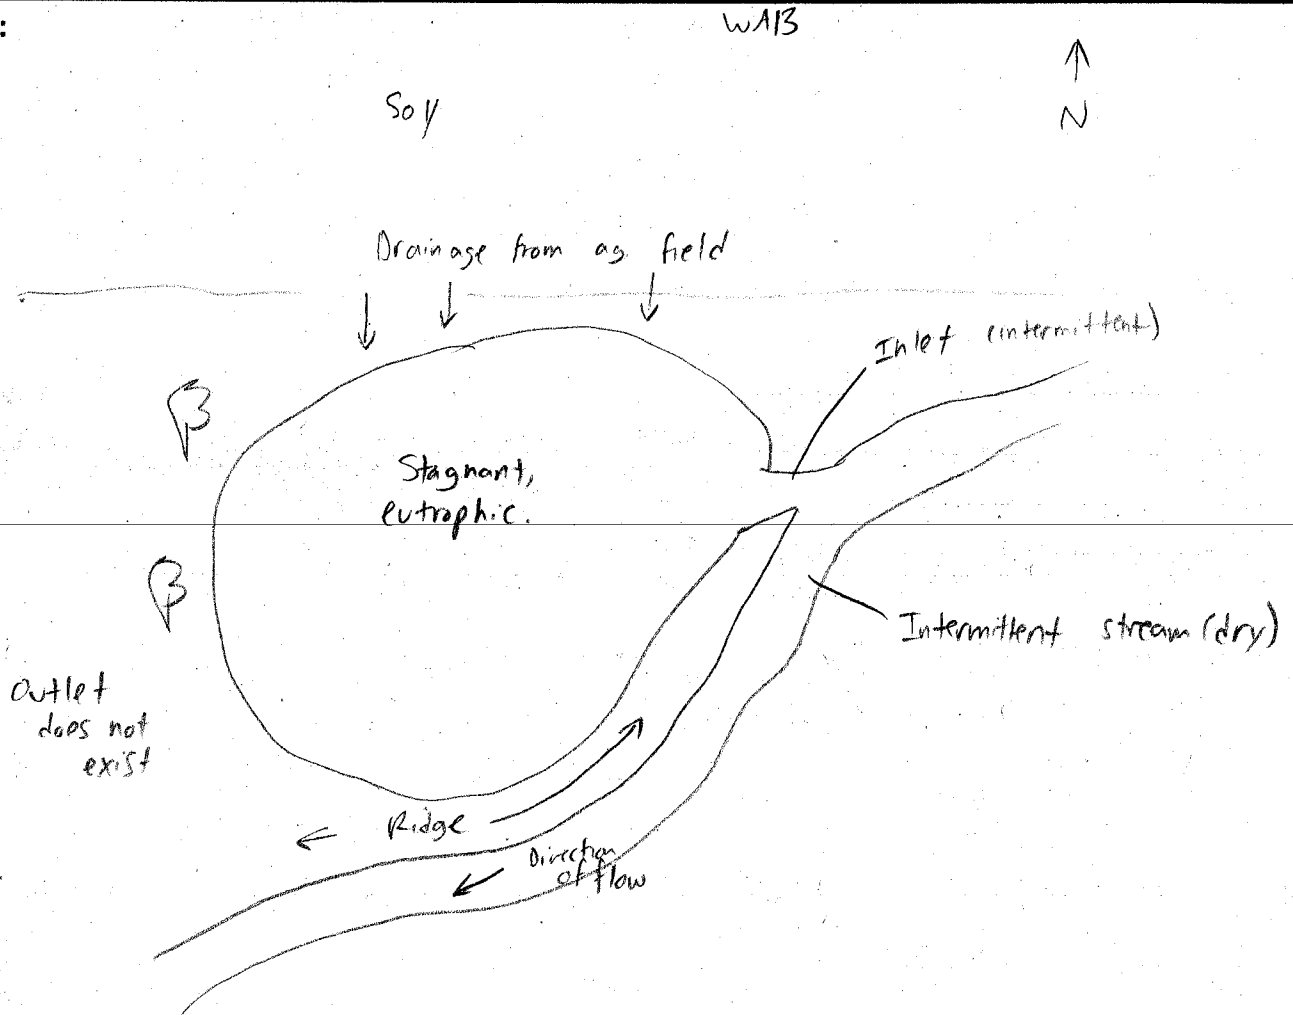 :
WAB
N
Soy
Drainage from ag. field
Inlet (intermittent)
Stagnant,
eutrophic.
Intermittent stream (dry)
Outlet
does not
exist
Ridge
Direction
of flow